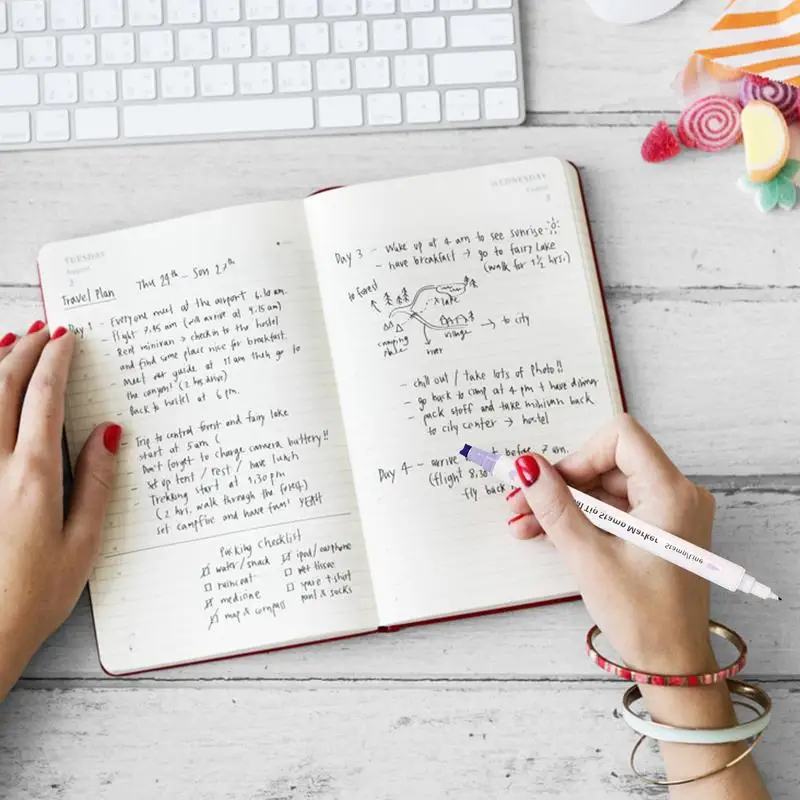 TUESDAY
August
2
Travel Plan
Thu 24th - Sun 27th
Day 1 - Everyone meet at the airport 6.10 am.
- flight 7.45 am (will arrive at 9.15 am)
- Rent minivan → checkin to the hostel
and find some place nice for breakfast.
- Meet our guide at 11 am then go to
the canyon! (2 hrs drive)
- Back to hostel at 6 pm.
- Trip to central forest and fairy lake
start at 5 am (
- Don't forget to change camera battery!!
- Set up tent / rest / have lunch
- Trekking start at 1.30 pm
(2 hrs. walk through the forest)
- set campfire and have fun! YEAH
Packing Checklist
water/snack
raincoat
medicine
map & compass
ipod/earphone
wet tissue
spare t-shirt
pant & socks
WEDNESDAY
August
3
Day 3 - Wake up at 4 am to see sunrise
- have breakfast → go to fairy lake
(walk for 1 1/2 hrs.)
to forest
lake
→ to city
camping
place
village
river
- chill out / take lots of photo!!
- go back to camp at 4 pm + have dinner
- pack stuff and take minivan back
to city center → hostel
Day 4 - arrive before 7 am.
(flight 8.30
fly back
Tip Stamp Marker
Stamp/Line